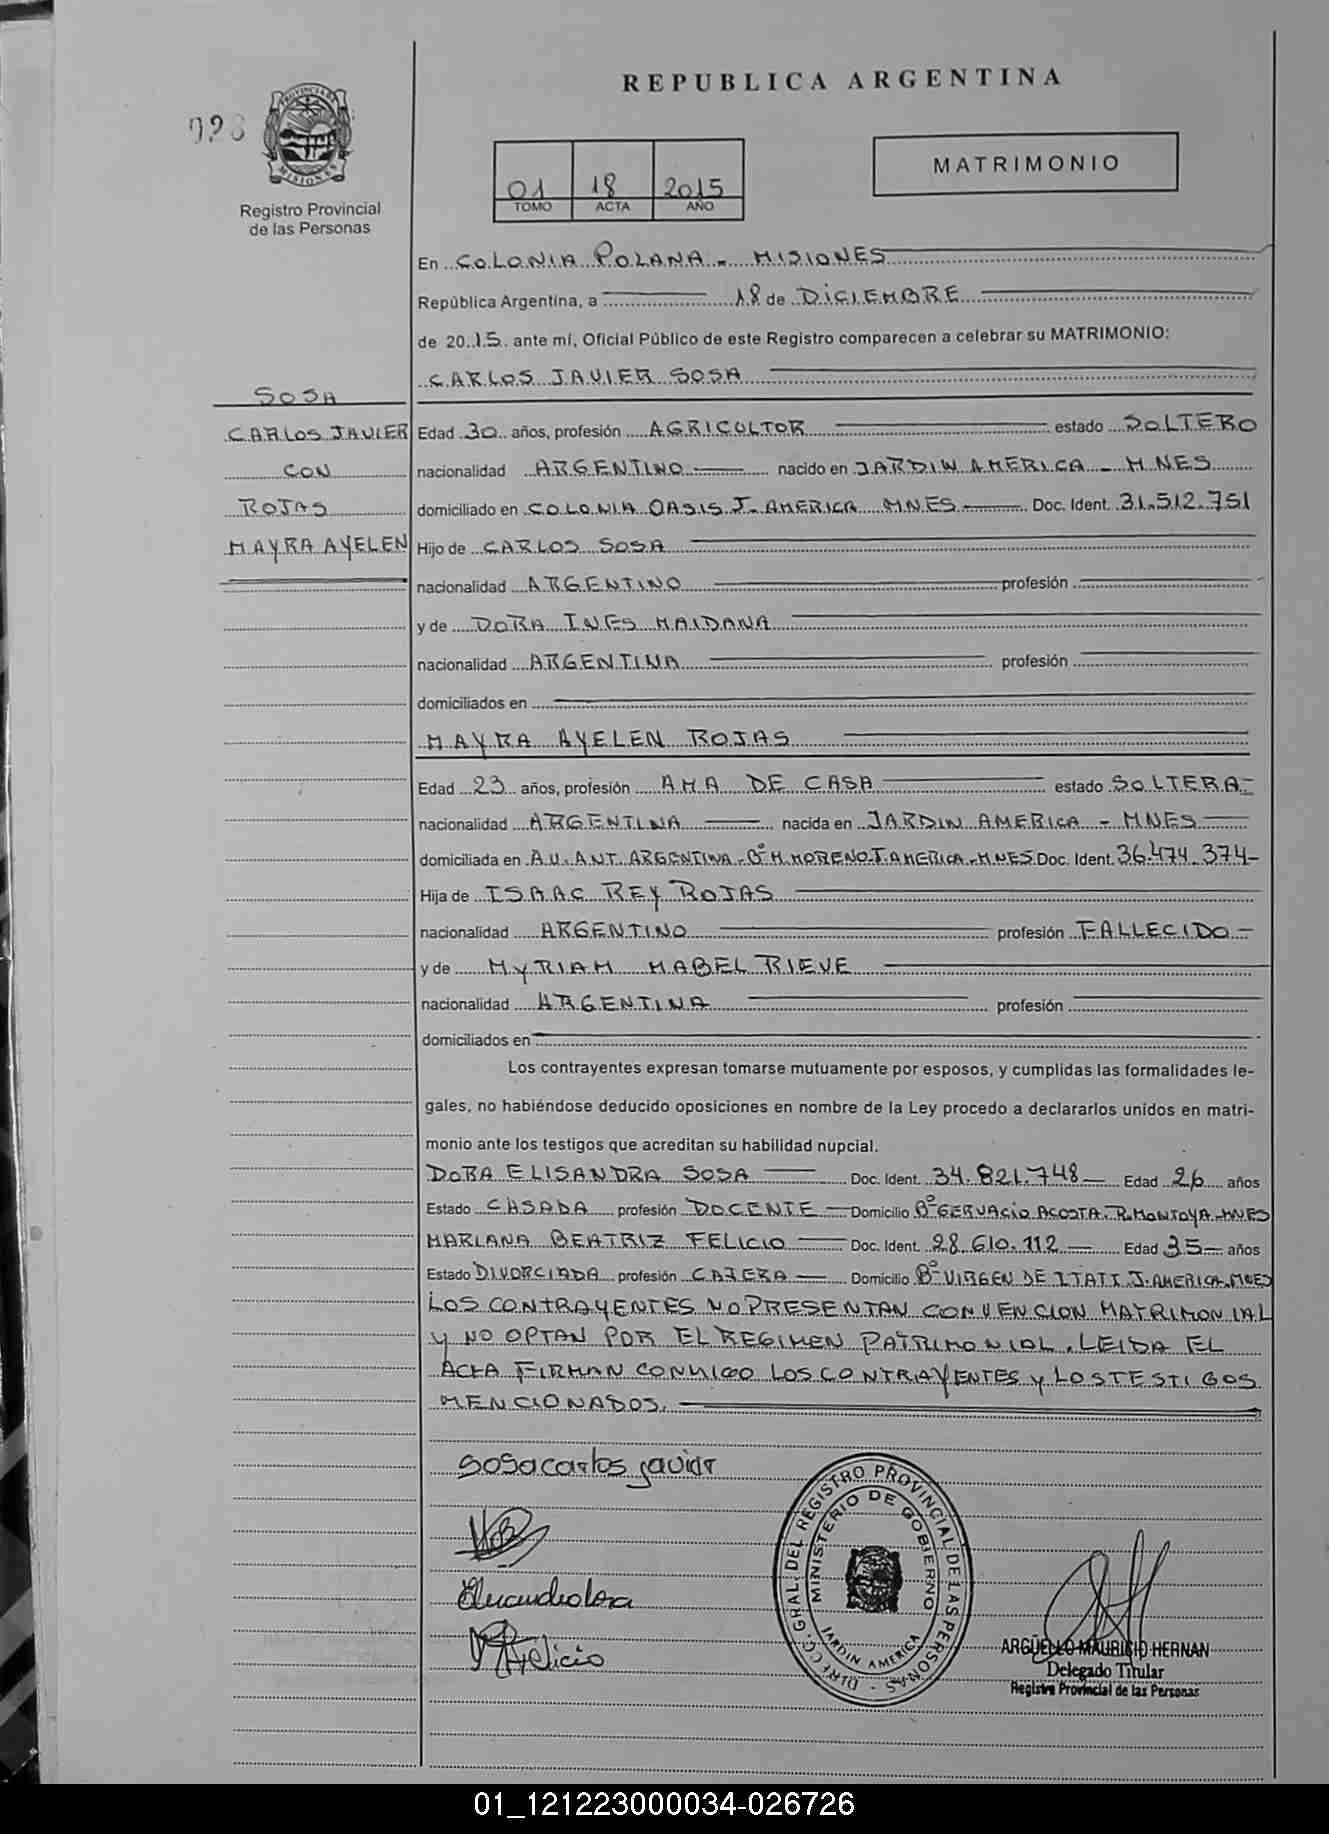 REPUBLICA ARGENTINA
028
PROVINCIA DE
MISIONES
Registro Provincial
de las Personas
01 18 2015
TOMO ACTA AÑO
MATRIMONIO
En COLONIA POLANA - MISIONES
República Argentina, a 18 de DICIEMBRE
de 2015 ante mí, Oficial Público de este Registro comparecen a celebrar su MATRIMONIO:
CARLOS JAVIER SOSA
SOSA
CARLOS JAVIER
CON
ROJAS
MAYRA AYELEN
Edad 30 años, profesión AGRICULTOR estado SOLTERO
nacionalidad ARGENTINO nacido en JARDIN AMERICA - MNES
domiciliado en COLONIA OASIS J. AMERICA MNES Doc. Ident. 31.512.751
Hijo de CARLOS SOSA
nacionalidad ARGENTINO profesión
y de DORA INES MAIDANA
nacionalidad ARGENTINA profesión
domiciliados en
MAYRA AYELEN ROJAS
Edad 23 años, profesión AMA DE CASA estado SOLTERA
nacionalidad ARGENTINA nacida en JARDIN AMERICA - MNES
domiciliada en AV. ANT. ARGENTINA - Bº M. MORENO J. AMERICA - MNES Doc. Ident. 36.474.374-
Hija de ISAAC REY ROJAS
nacionalidad ARGENTINO profesión FALLECIDO -
y de MYRIAM MABEL RIEVE
nacionalidad ARGENTINA profesión
domiciliados en
Los contrayentes expresan tomarse mutuamente por esposos, y cumplidas las formalidades le-
gales, no habiéndose deducido oposiciones en nombre de la Ley procedo a declararlos unidos en matri-
monio ante los testigos que acreditan su habilidad nupcial.
DORA ELISANDRA SOSA Doc. Ident. 34.821.748 Edad 26 años
Estado CASADA profesión DOCENTE Domicilio Bº GERVACIO ACOSTA. R. MONTOYA - MNES
MARIANA BEATRIZ FELICIO Doc. Ident. 28.610.112 Edad 35 años
Estado DIVORCIADA profesión CAJERA Domicilio Bº VIRGEN DE ITATI J. AMERICA. MNES
LOS CONTRAYENTES NO PRESENTAN CONVENCION MATRIMONIAL
Y NO OPTAN POR EL REGIMEN PATRIMONIAL. LEIDA EL
ACTA FIRMAN CONMIGO LOS CONTRAYENTES Y LOS TESTIGOS
MENCIONADOS.
Sosa carlos javier
Felicio
DIRECC. GRAL. DEL REGISTRO PROVINCIAL DE LAS PERSONAS -
MINISTERIO DE GOBIERNO
JARDIN AMERICA
ARGÜELLO MAURICIO HERNAN
Delegado Titular
Registro Provincial de las Personas
01_121223000034-026726